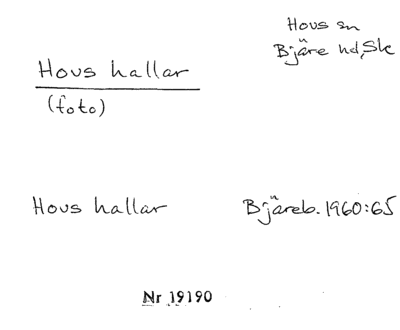 Hovs sn
Bjäre hd, Sk
Hovs hallar
(foto)
Hovs hallar Bjäreb. 1960:65
Nr 19190